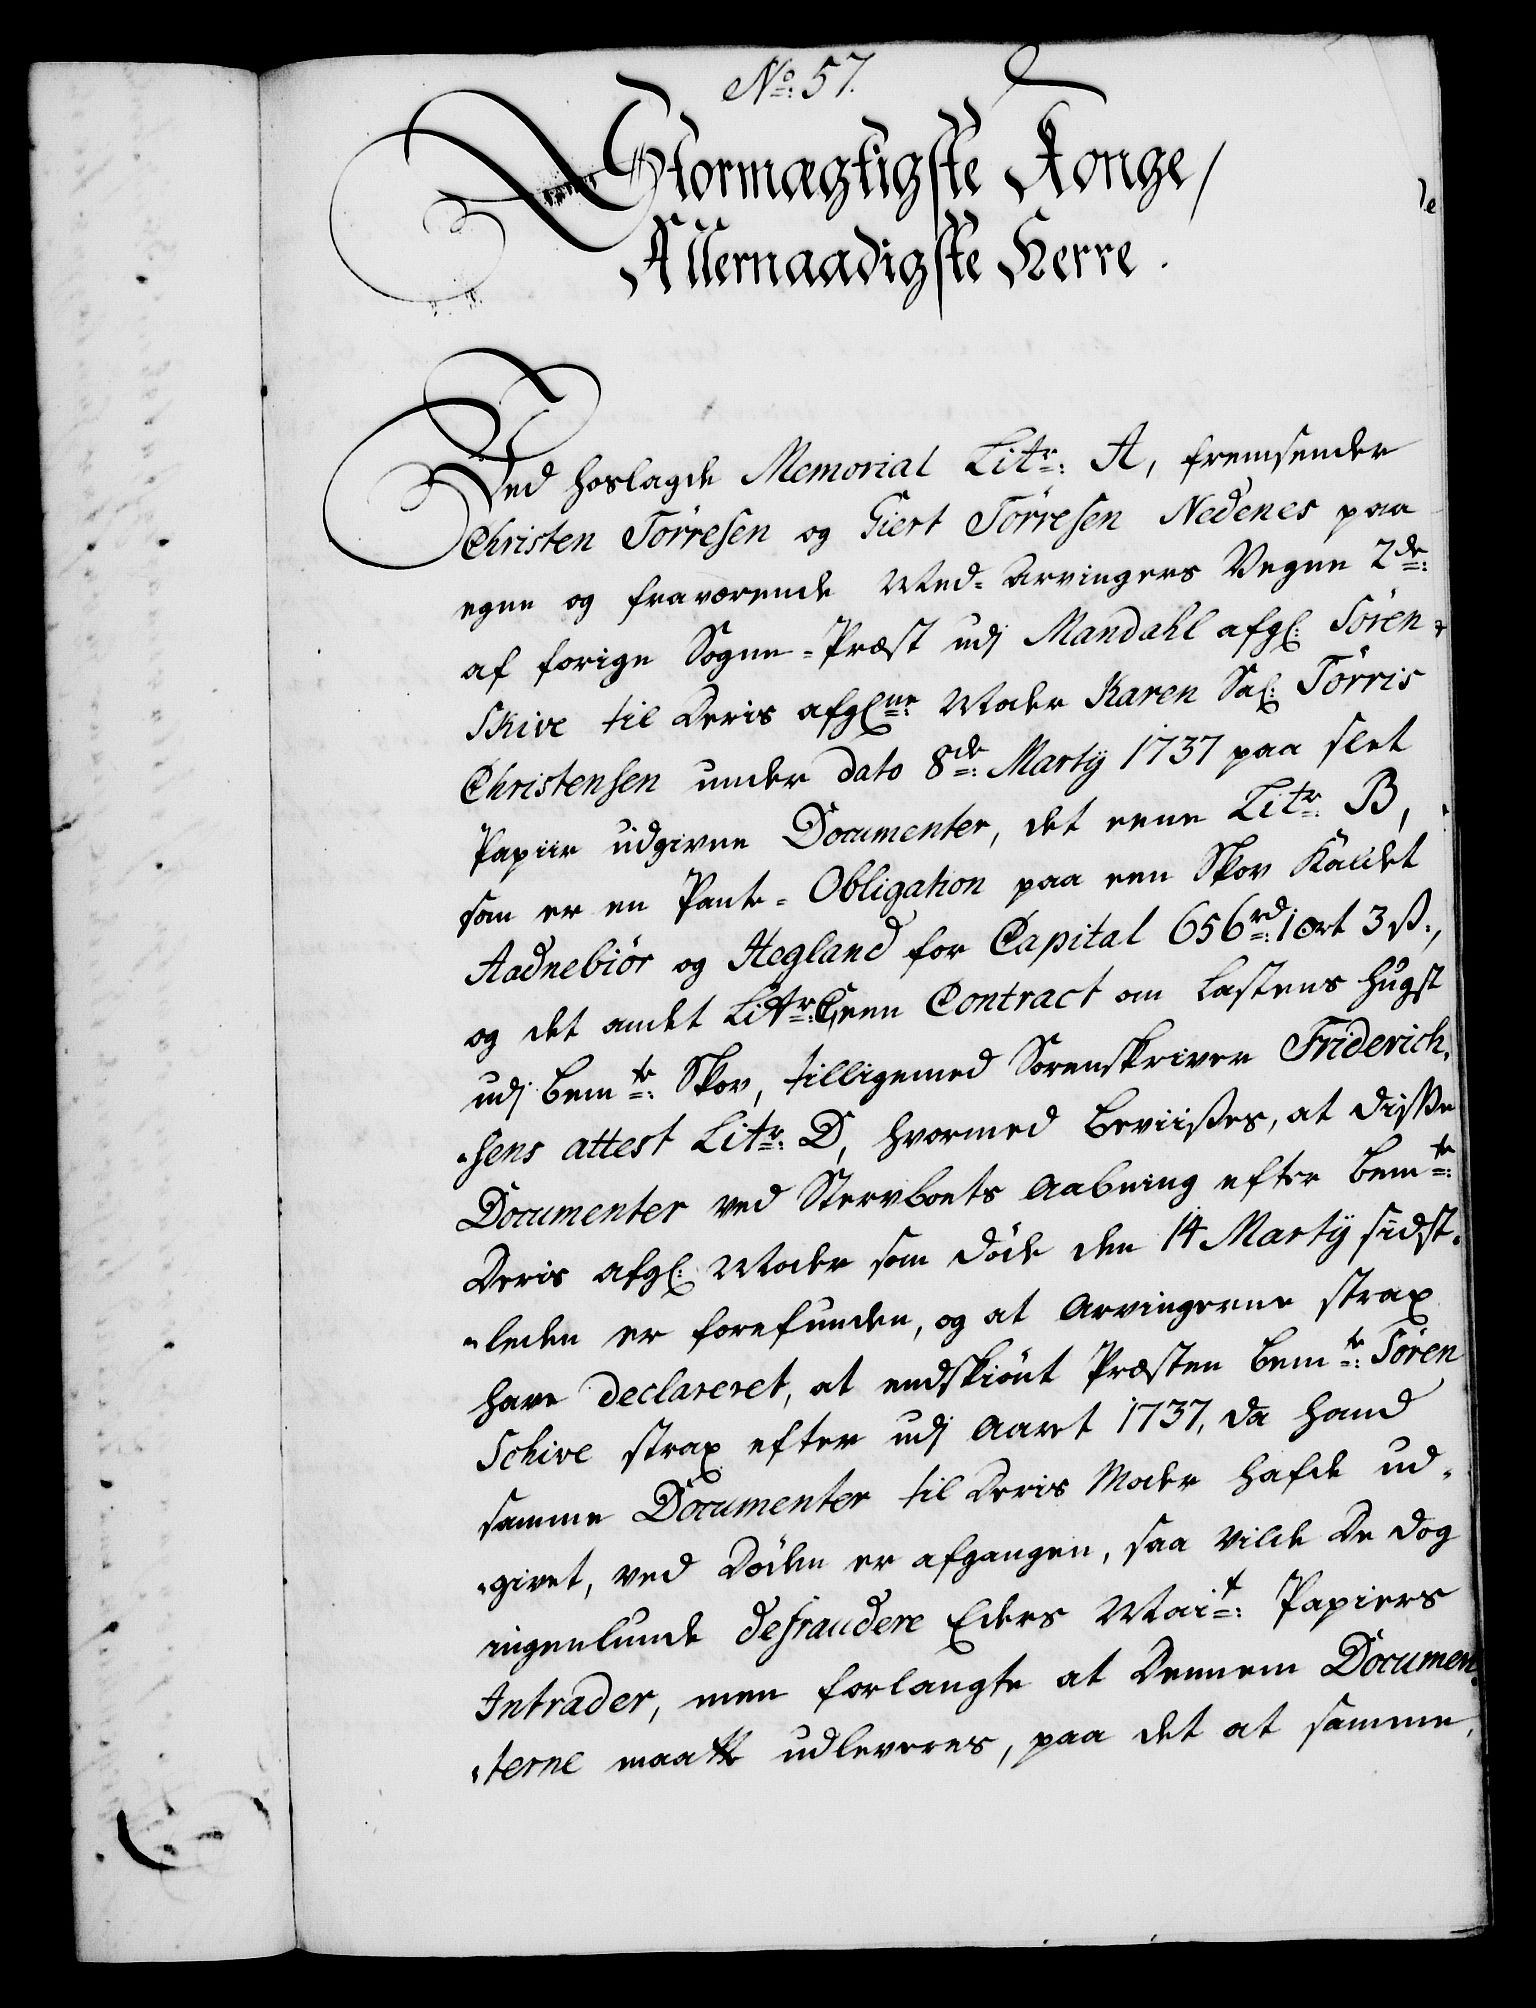 No: 57.
Stormægtigste Konge /
Allernaadigste Herre.
Ved hoslagde Memorial Litr: A, fremsender
Christen Törresen og Giert Törresen Nedenes paa
egne og fraværende Med-Arvingers Vegne 2de:
af forige Sogne-Præst udj Mandahl afgl: Sören
Skive til deris afglne: Moder Karen Sal: Törris
Christensen under dato 8de: Martij 1737 paa slet
Papiir udgivne Documenter, det eene Litr: B,
som er en Pante-Obligation paa een Skov kaldet
Aadnebiör og Hegland for Capital 656rd: 1 ort 3 ß.,
og det andet Litr: C, een Contract om Lastens hugst
udj bemte: Skov, tilligemed Sorenskriver Friderich-
-sens attest Litr: D, hvormed beviises, at disse
Documenter ved Stervboets Aabning efter bemte:
deris afgl: Moder som döde den 14 Martij sidst-
-leden er forefunden, og at Arvingerne strax
have declareret, at endskiönt Præsten bemte: Sören
Schive strax efter udj Aaret 1737, da hand
samme Documenter til deris Moder hafde ud-
-givet, ved Döden er afgangen, saa vilde de dog
ingenlunde defraudere Eders Mait: Papiers
Intrader, men forlangte at dennem Documen-
-terne maatte udleveres, paa det at samme,